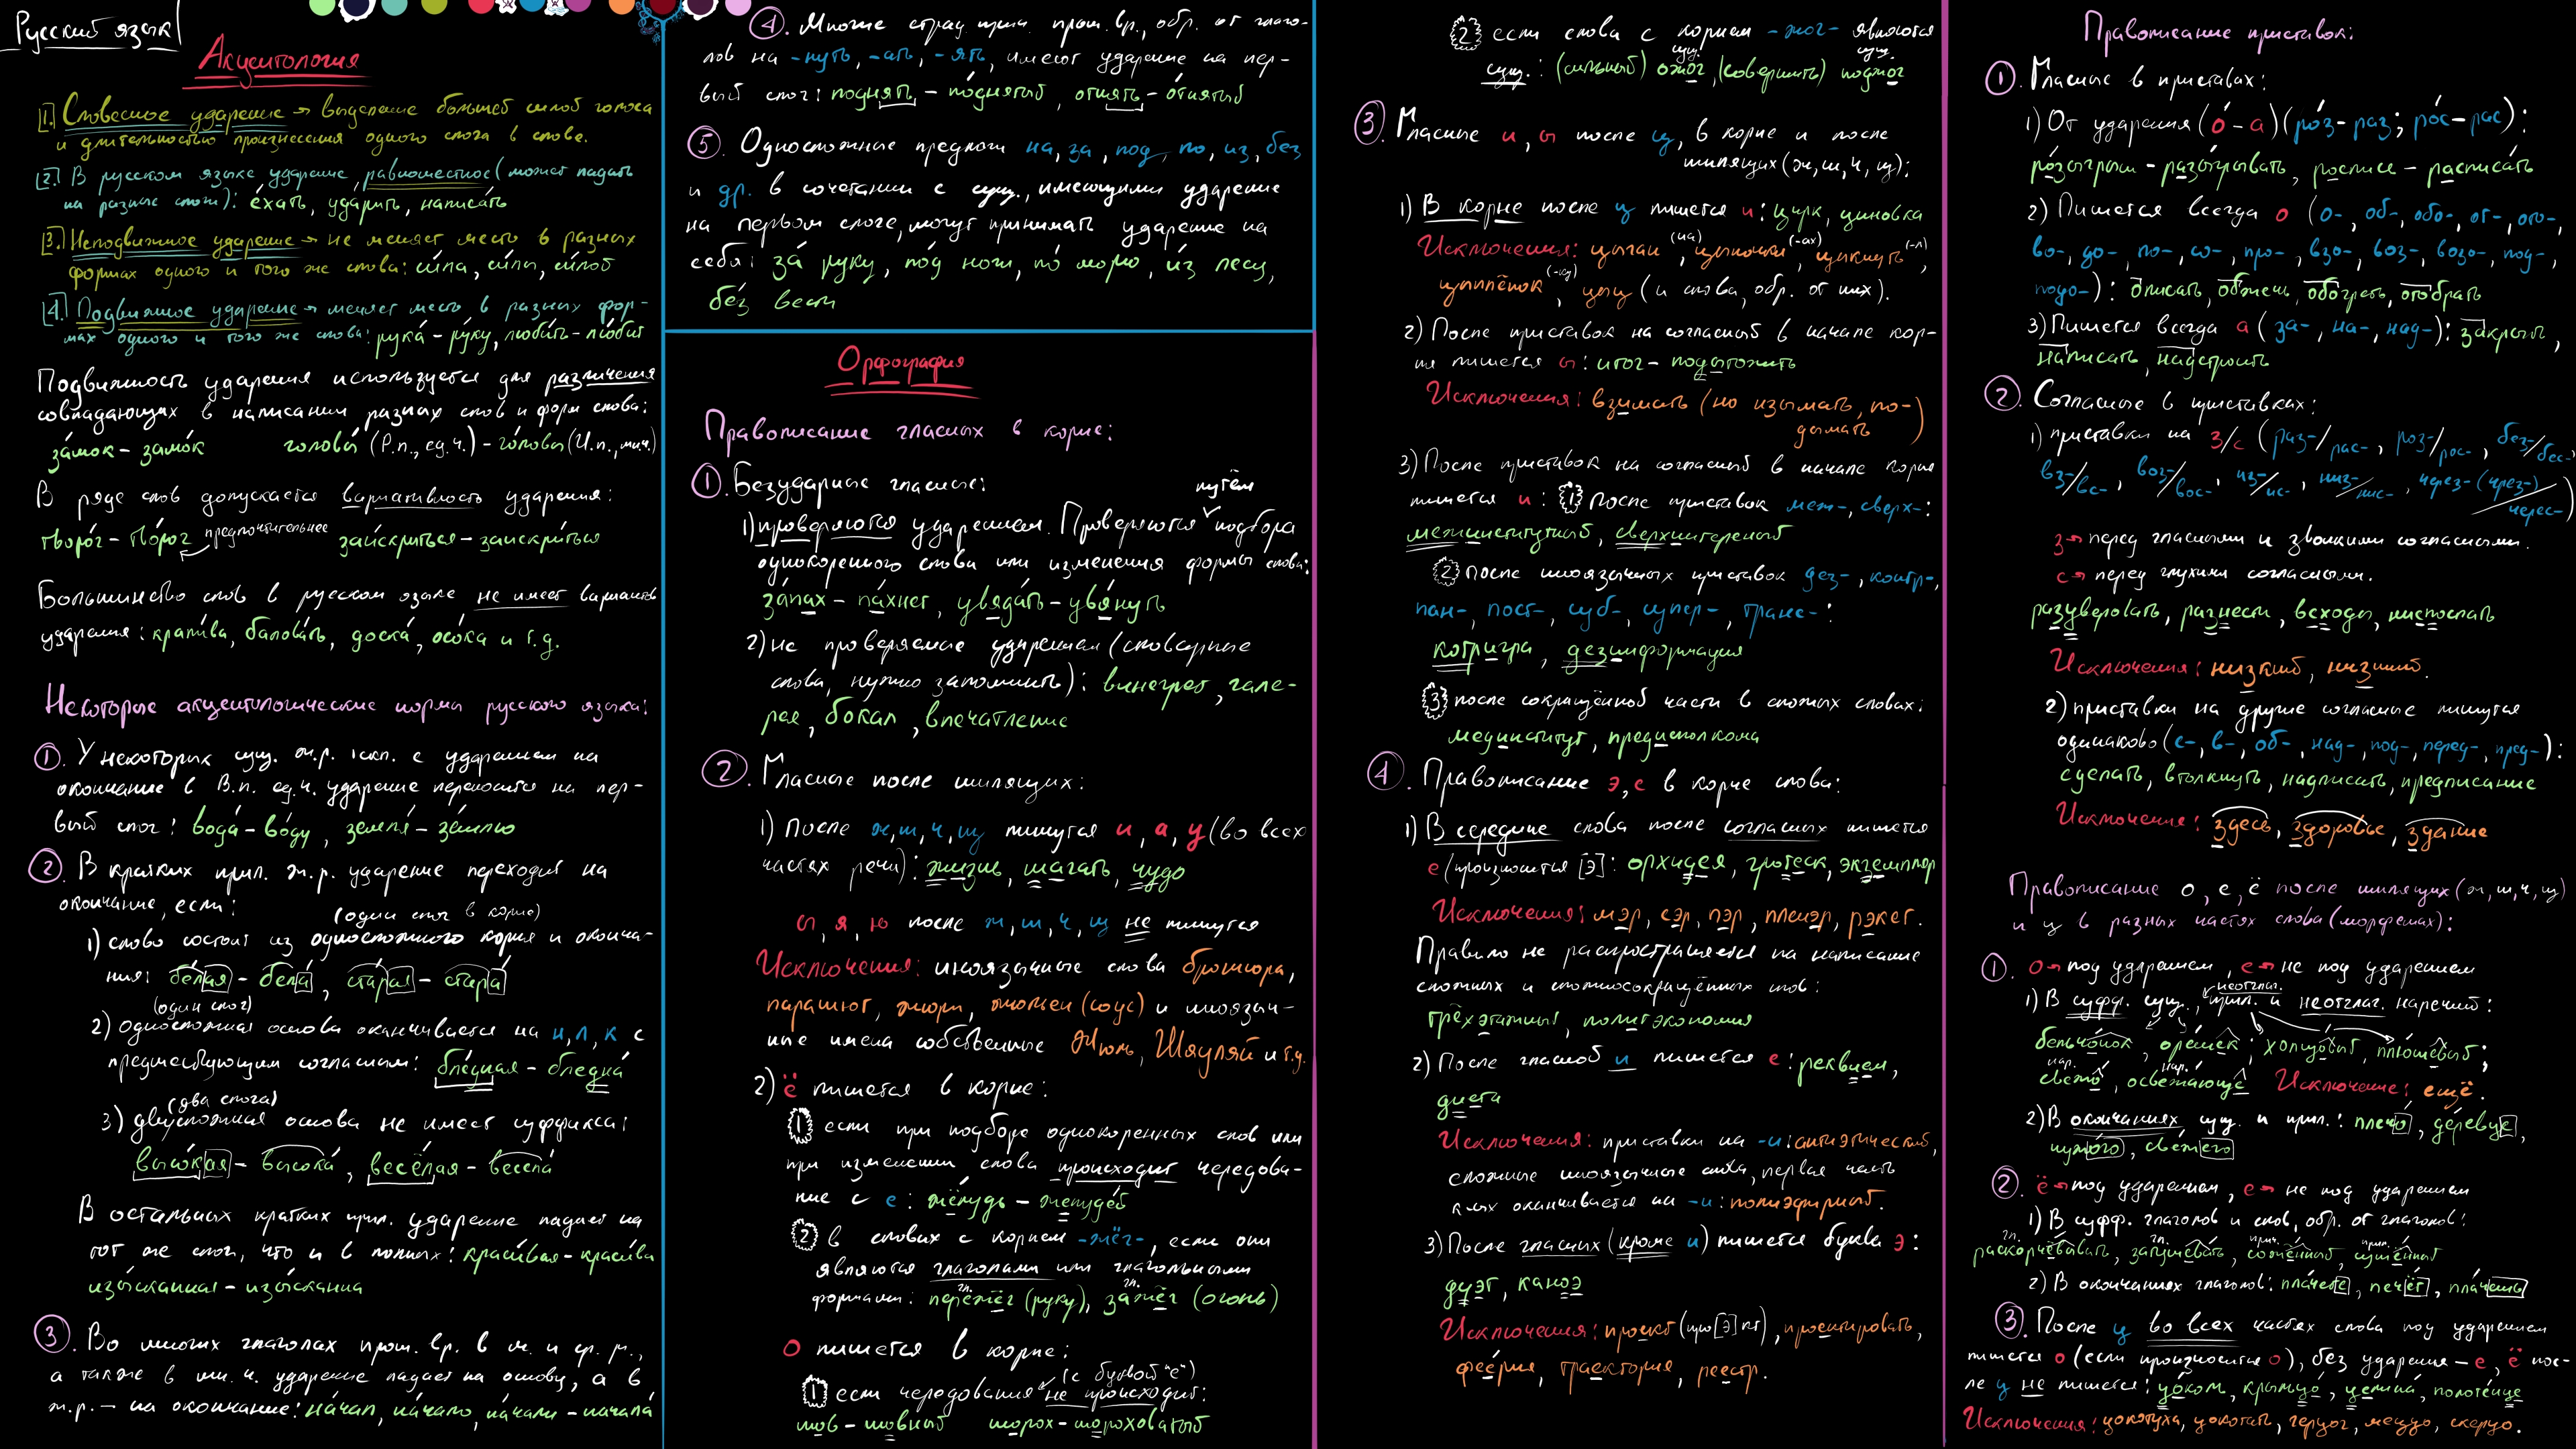 Русский язык
Акцентология
1. Словесное ударение → выделение большей силой голоса
и длительностью произнесения одного слога в слове.
2. В русском языке ударение разноместное (может падать
на разные слоги): е́хать, уда́рить, написа́ть
3. Неподвижное ударение → не меняет место в разных
формах одного и того же слова: си́ла, си́лы, си́лой
4. Подвижное ударение → меняет место в разных фор-
мах одного и того же слова: рука́ – ру́ку, люби́ть – лю́бит
Подвижность ударения используется для различения
совпадающих в написании разных слов и форм слова:
за́мок – замо́к головы́ (Р.п., ед.ч.) – го́ловы (И.п., мн.ч.)
В ряде слов допускается вариативность ударения:
творо́г – тво́рог предпочтительнее заи́скриться – заискри́ться
Большинство слов в русском языке не имеет вариантов
ударения: крапи́ва, балова́ть, доска́, осо́ка и т.д.
Некоторые акцентологические нормы русского языка:
1. У некоторых сущ. ж.р. 1 скл. с ударением на
окончание в В.п. ед.ч. ударение переносится на пер-
вый слог: вода́ – во́ду, земля́ – зе́млю
2. В кратких прил. ж.р. ударение переходит на
окончание, если:
(один слог в корне)
1) слово состоит из односложного корня и оконча-
ния: бе́лая – бела́, ста́рая – стара́
(один слог)
2) односложная основа оканчивается на н, л, к с
предшествующим согласным: бле́дная – бледна́
(два слога)
3) двусложная основа не имеет суффикса:
высо́кая – высока́, весёлая – весела́
В остальных кратких прил. ударение падает на
тот же слог, что и в полных: краси́вая – краси́ва
изы́сканная – изы́сканна
3. Во многих глаголах прош. вр. в м. и ср. р.,
а также в мн. ч. ударение падает на основу, а в
ж.р. – на окончание: на́чал, на́чало, на́чали – начала́
4. Многие страд. прич. прош. вр., обр. от глаго-
лов на -нуть, -ать, -ять, имеют ударение на пер-
вый слог: поднять – по́днятый, отнять – о́тнятый
5. Односложные предлоги на, за, под, по, из, без
и др. в сочетании с сущ., имеющими ударение
на первом слоге, могут принимать ударение на
себя: за́ руку, по́д ноги, по́ морю, и́з лесу,
бе́з вести
Орфография
Правописание гласных в корне:
1. Безударные гласные:
путём
1) проверяются ударением. Проверяются подбора
однокоренного слова или изменения формы слова:
за́пах – па́хнет, увяда́ть – увя́нуть
2) не проверяемые ударением (словарные
слова, нужно запомнить): винегрет, гале-
рея, бокал, впечатление
2. Гласные после шипящих:
1) После ж, ш, ч, щ пишутся и, а, у (во всех
частях речи): жизнь, шагать, чудо
ы, я, ю после ж, ш, ч, щ не пишутся
Исключения: иноязычные слова брошюра,
парашют, жюри, жюльен (соус) и иноязыч-
ные имена собственные Жюль, Шяуляй и т.д.
2) ё пишется в корне:
1 если при подборе однокоренных слов или
при изменении слова происходит чередова-
ние с е: жёлудь – желудей
2 в словах с корнем -жёг-, если они
являются глаголами или глагольными
формами: пережёг гл. (руку), зажёг гл. (огонь)
о пишется в корне:
(с буквой "е")
1 если чередования не происходит:
шов – шовный шорох – шороховатый
2 если слова с корнем -жог- являются
сущ.: (сильный) ожог сущ., (совершить) поджог сущ.
3. Гласные и, ы после ц, в корне и после
шипящих (ж, ш, ч, щ):
1) В корне после ц пишется и: цирк, циновка
Исключения: цыган (на), цыпочки (-ах), цыкнуть (-л),
цыплёнок, цыц (и слова, обр. от них).
2) После приставок на согласный в начале кор-
ня пишется ы: итог – подытожить
Исключения: взимать (но изымать, по-
дымать)
3) После приставок на согласный в начале корня
пишется и: 1 после приставок меж-, сверх-:
межинститутный, сверхинтересный
2 После иноязычных приставок дез-, контр-,
пан-, пост-, суб-, супер-, транс-:
котригра, дезинформация
3 после сокращённой части в сложных словах:
мединститут, предисполкома
4. Правописание э, е в корне слова:
1) В середине слова после согласных пишется
е (произносится [э]: орхидея, гротеск, экземпляр
Исключения: мэр, сэр, пэр, пленэр, рэкет.
Правило не распространяется на написание
сложных и сложносокращённых слов:
трёхэтажный, политэкономия
2) После гласной и пишется е: реквием,
диета
Исключения: приставки на -и: антиэтический,
сложные иноязычные слова, первая часть
к-ых оканчивается на -и: полиэфирный.
3) После гласных (кроме и) пишется буква э:
дуэт, каноэ
Исключения: проект (про[э]кт), проектировать,
феерия, траектория, реестр.
Правописание приставок:
1. Гласные в приставках:
1) От ударения (о́ – а) (ро́з – раз; ро́с – рас):
ро́зыгрыш – разы́грывать, ро́спись – расписать
2) Пишется всегда о (о-, об-, обо-, от-, ото-,
во-, до-, по-, со-, про-, взо-, воз-, возо-, под-,
подо-): описать, обжечь, обогреть, отобрать
3) Пишется всегда а (за-, на-, над-): закрыл,
написать, надстроить
2. Согласные в приставках:
1) приставки на з/с (раз-/рас-, роз-/рос-, без-/бес-,
вз-/вс-, воз-/вос-, из-/ис-, низ-/нис-, через- (чрез-)/
черес-)
з → перед гласными и звонкими согласными.
с → перед глухими согласными.
разуверовать, разнести, всходы, ниспослать
Исключения: низкий, низший.
2) приставки на другие согласные пишутся
одинаково (с-, в-, об-, над-, под-, перед-, пред-):
сделать, втолкнуть, надписать, предписание
Исключения: здесь, здоровье, здание
Правописание о, е, ё после шипящих (ж, ш, ч, щ)
и ц в разных частях слова (морфемах):
1. о → под ударением, е → не под ударением
неотглаг.
1) В суфф. сущ., прил. и неотглаг. наречий:
бельчонок, орешек; холщовый, плюшевый;
нар. нар.
свежо, освежающе Исключение: ещё.
2) В окончаниях сущ. и прил.: плечо, деревце,
чужого, свежего
2. ё → под ударением, е → не под ударением
1) В суфф. глаголов и слов, обр. от глаголов:
гл. гл. прич. прил.
раскорчёвывать, затушевать, сожжённый, тушённый
2) В окончаниях глаголов: плачете, печёт, плачешь
3. После ц во всех частях слова под ударением
пишется о (если произносится о), без ударения – е, ё пос-
ле ц не пишется: цоколь, крыльцо, целина, полотенце
Исключения: цокотуха, цокотать, герцог, меццо, скерцо.